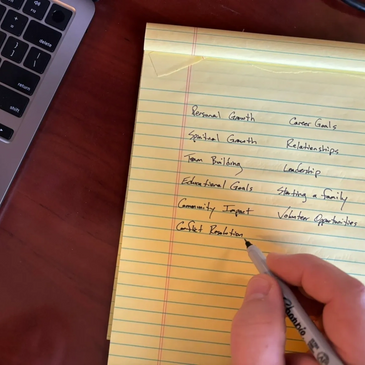 Personal Growth
Career Goals
Spiritual Growth
Relationships
Team Building
Leadership
Educational Goals
Starting a family
Community Impact
Volunteer Opportunities
Conflict Resolution
delete
return
shift
Sharpie